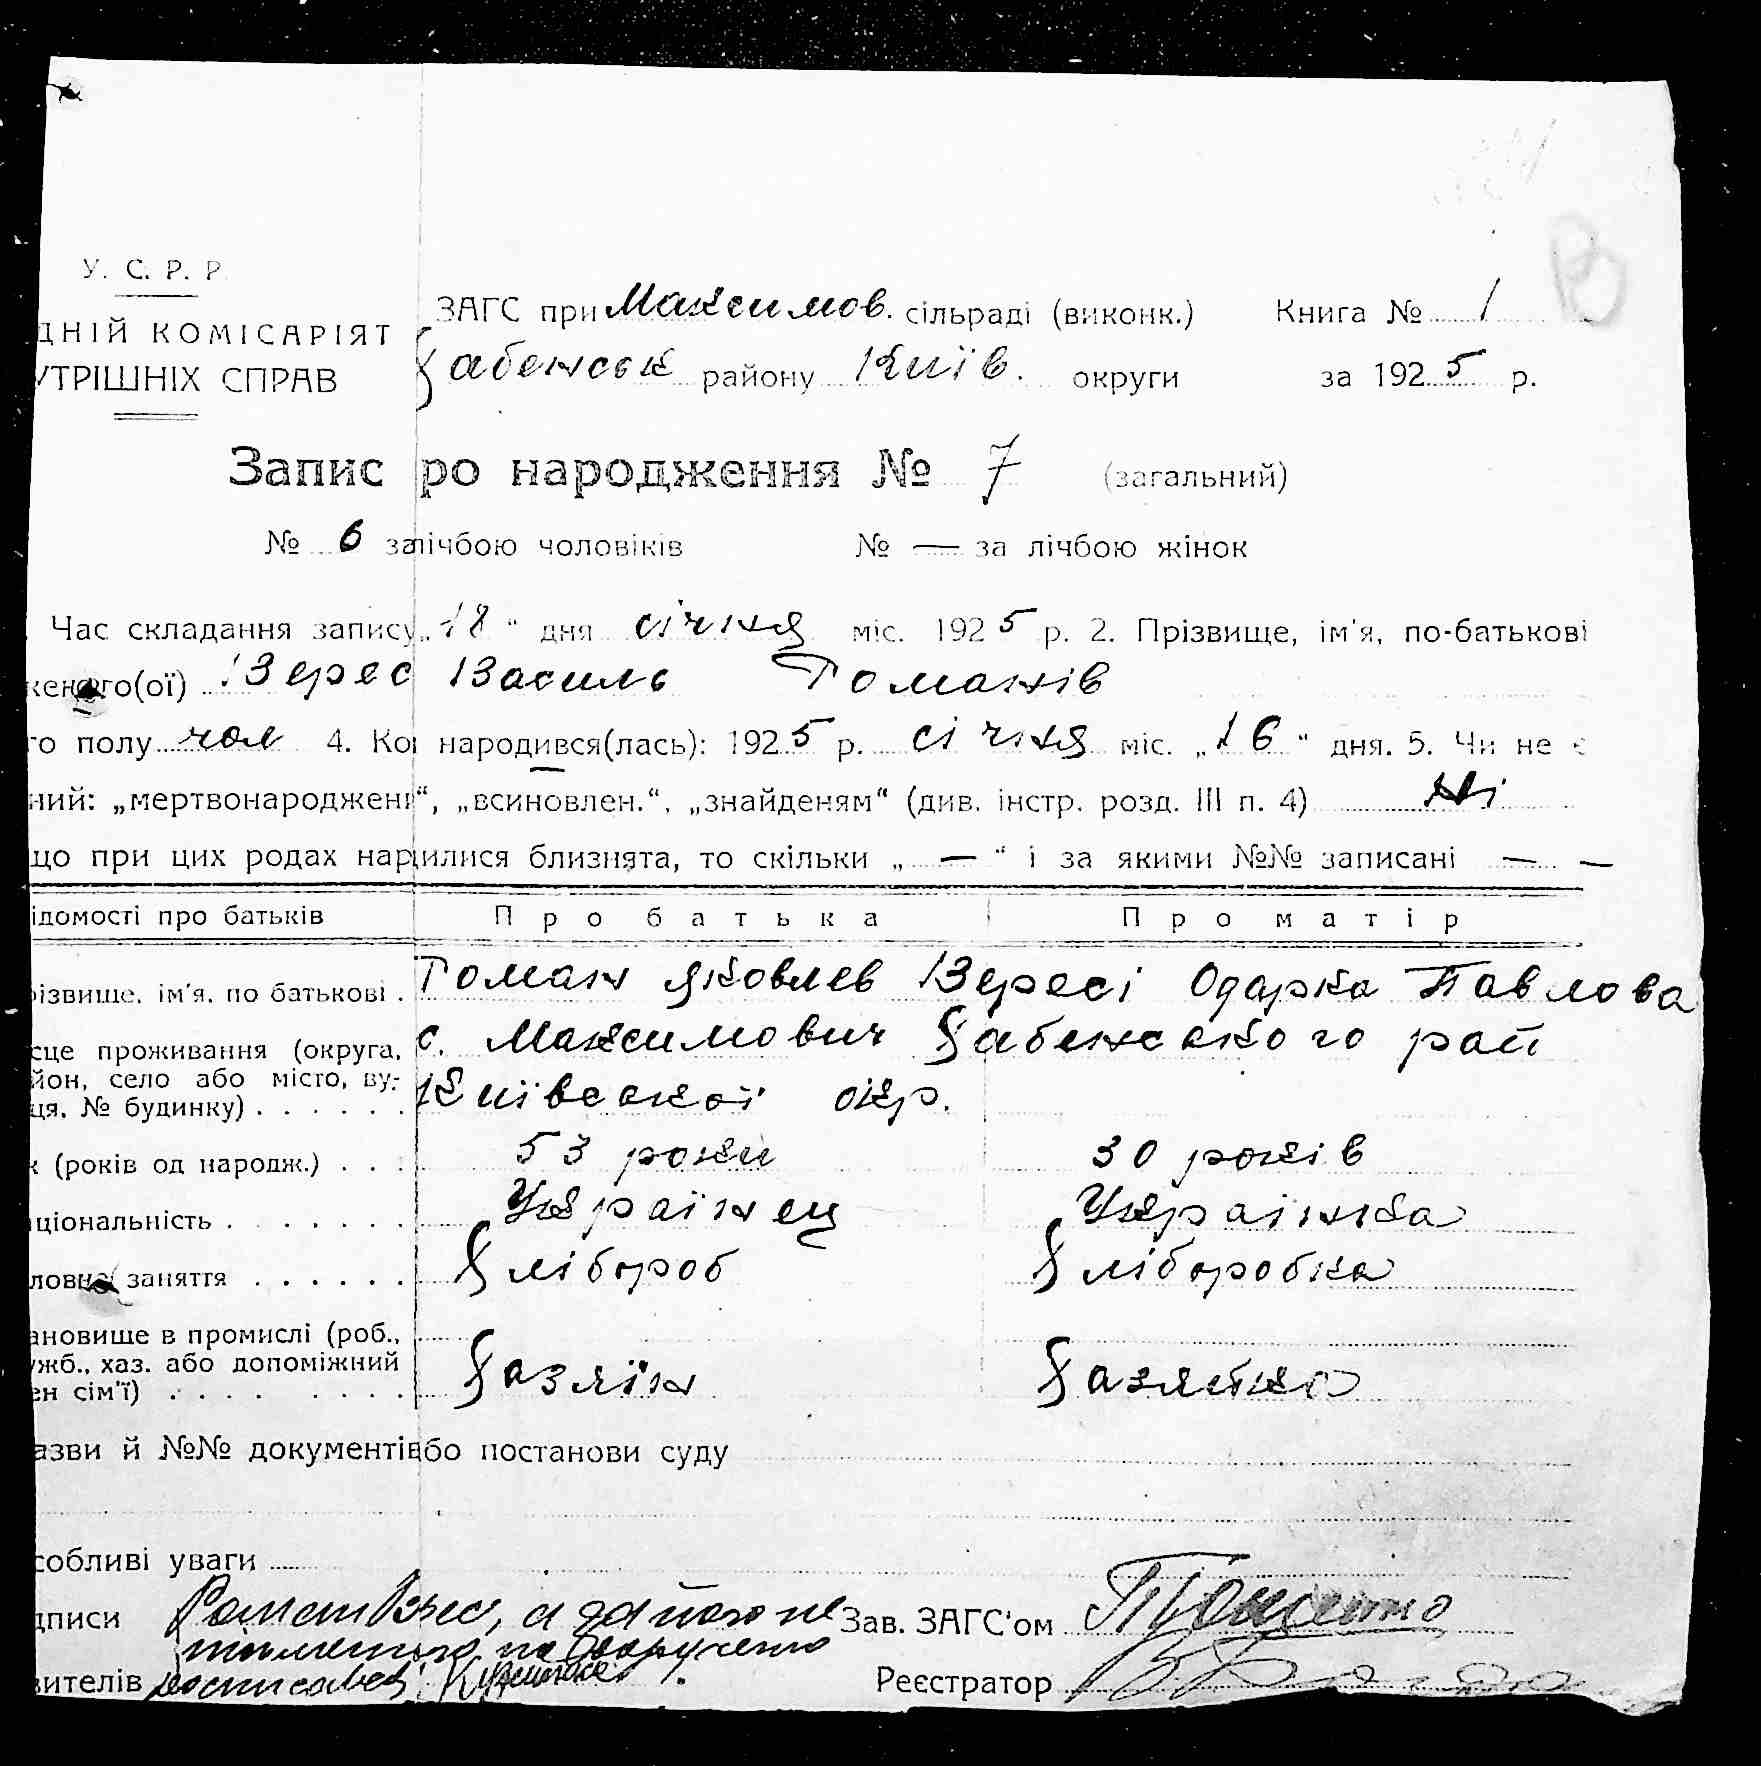 У. С. Р. Р.
ДНІЙ КОМІСАРІЯТ
УТРІШНІХ СПРАВ
ЗАГС при Максимов. сільраді (виконк.) Книга № 1
Хабенськ району Київ. округи за 1925 р.
Запис ро народження № 7 (загальний)
№ 6 за лічбою чоловіків № — за лічбою жінок
Час складання запису „18“ дня січня міс. 1925 р. 2. Прізвище, ім'я, по-батькові
женого(ої) Верес Василь Романів
го полу чол 4. Ко народився(лась): 1925 р. січня міс. „16“ дня. 5. Чи не є
ний: „мертвонароджен“, „всиновлен.“, „знайденям“ (див. інстр. розд. III п. 4) Ні
що при цих родах нар илися близнята, то скільки „ — “ і за якими №№ записані — —
ідомості про батьків Про батька Про матір
різвище, ім'я, по батькові . Роман Яковлев Вересі Одарка Павлова
сце проживання (округа, с. Максимович Хабенського рай
йон, село або місто, ву-
ця, № будинку) . . . . . . Київської окр.
к (років од народж.) . . . 53 роки 30 років
ціональність . . . . . . . Українец Українка
ловне заняття . . . . . . Хлібороб Хліборобка
ановище в промислі (роб.,
ужб., хаз. або допоміжний
ен сім'ї) . . . . . . . . Хазяїн Хазяйка
азви й №№ документів бо постанови суду
собливі уваги
дписи Роман Верес, а за його не Зав. ЗАГС'ом
вителів Реєстратор